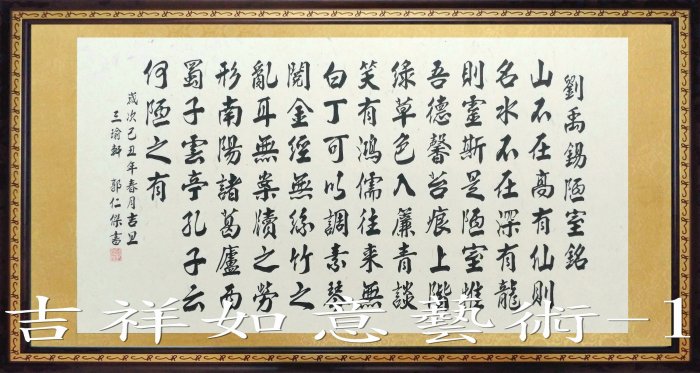 劉禹錫陋室銘
山不在高有仙則
名水不在深有龍
則靈斯是陋室惟
吾德馨苔痕上階
綠草色入簾青談
笑有鴻儒往來無
白丁可以調素琴
閱金經無絲竹之
亂耳無案牘之勞
形南陽諸葛廬西
蜀子雲亭孔子云
何陋之有
歲次己丑年春月吉旦
三瑜軒 郭仁傑書
吉祥如意藝術-1